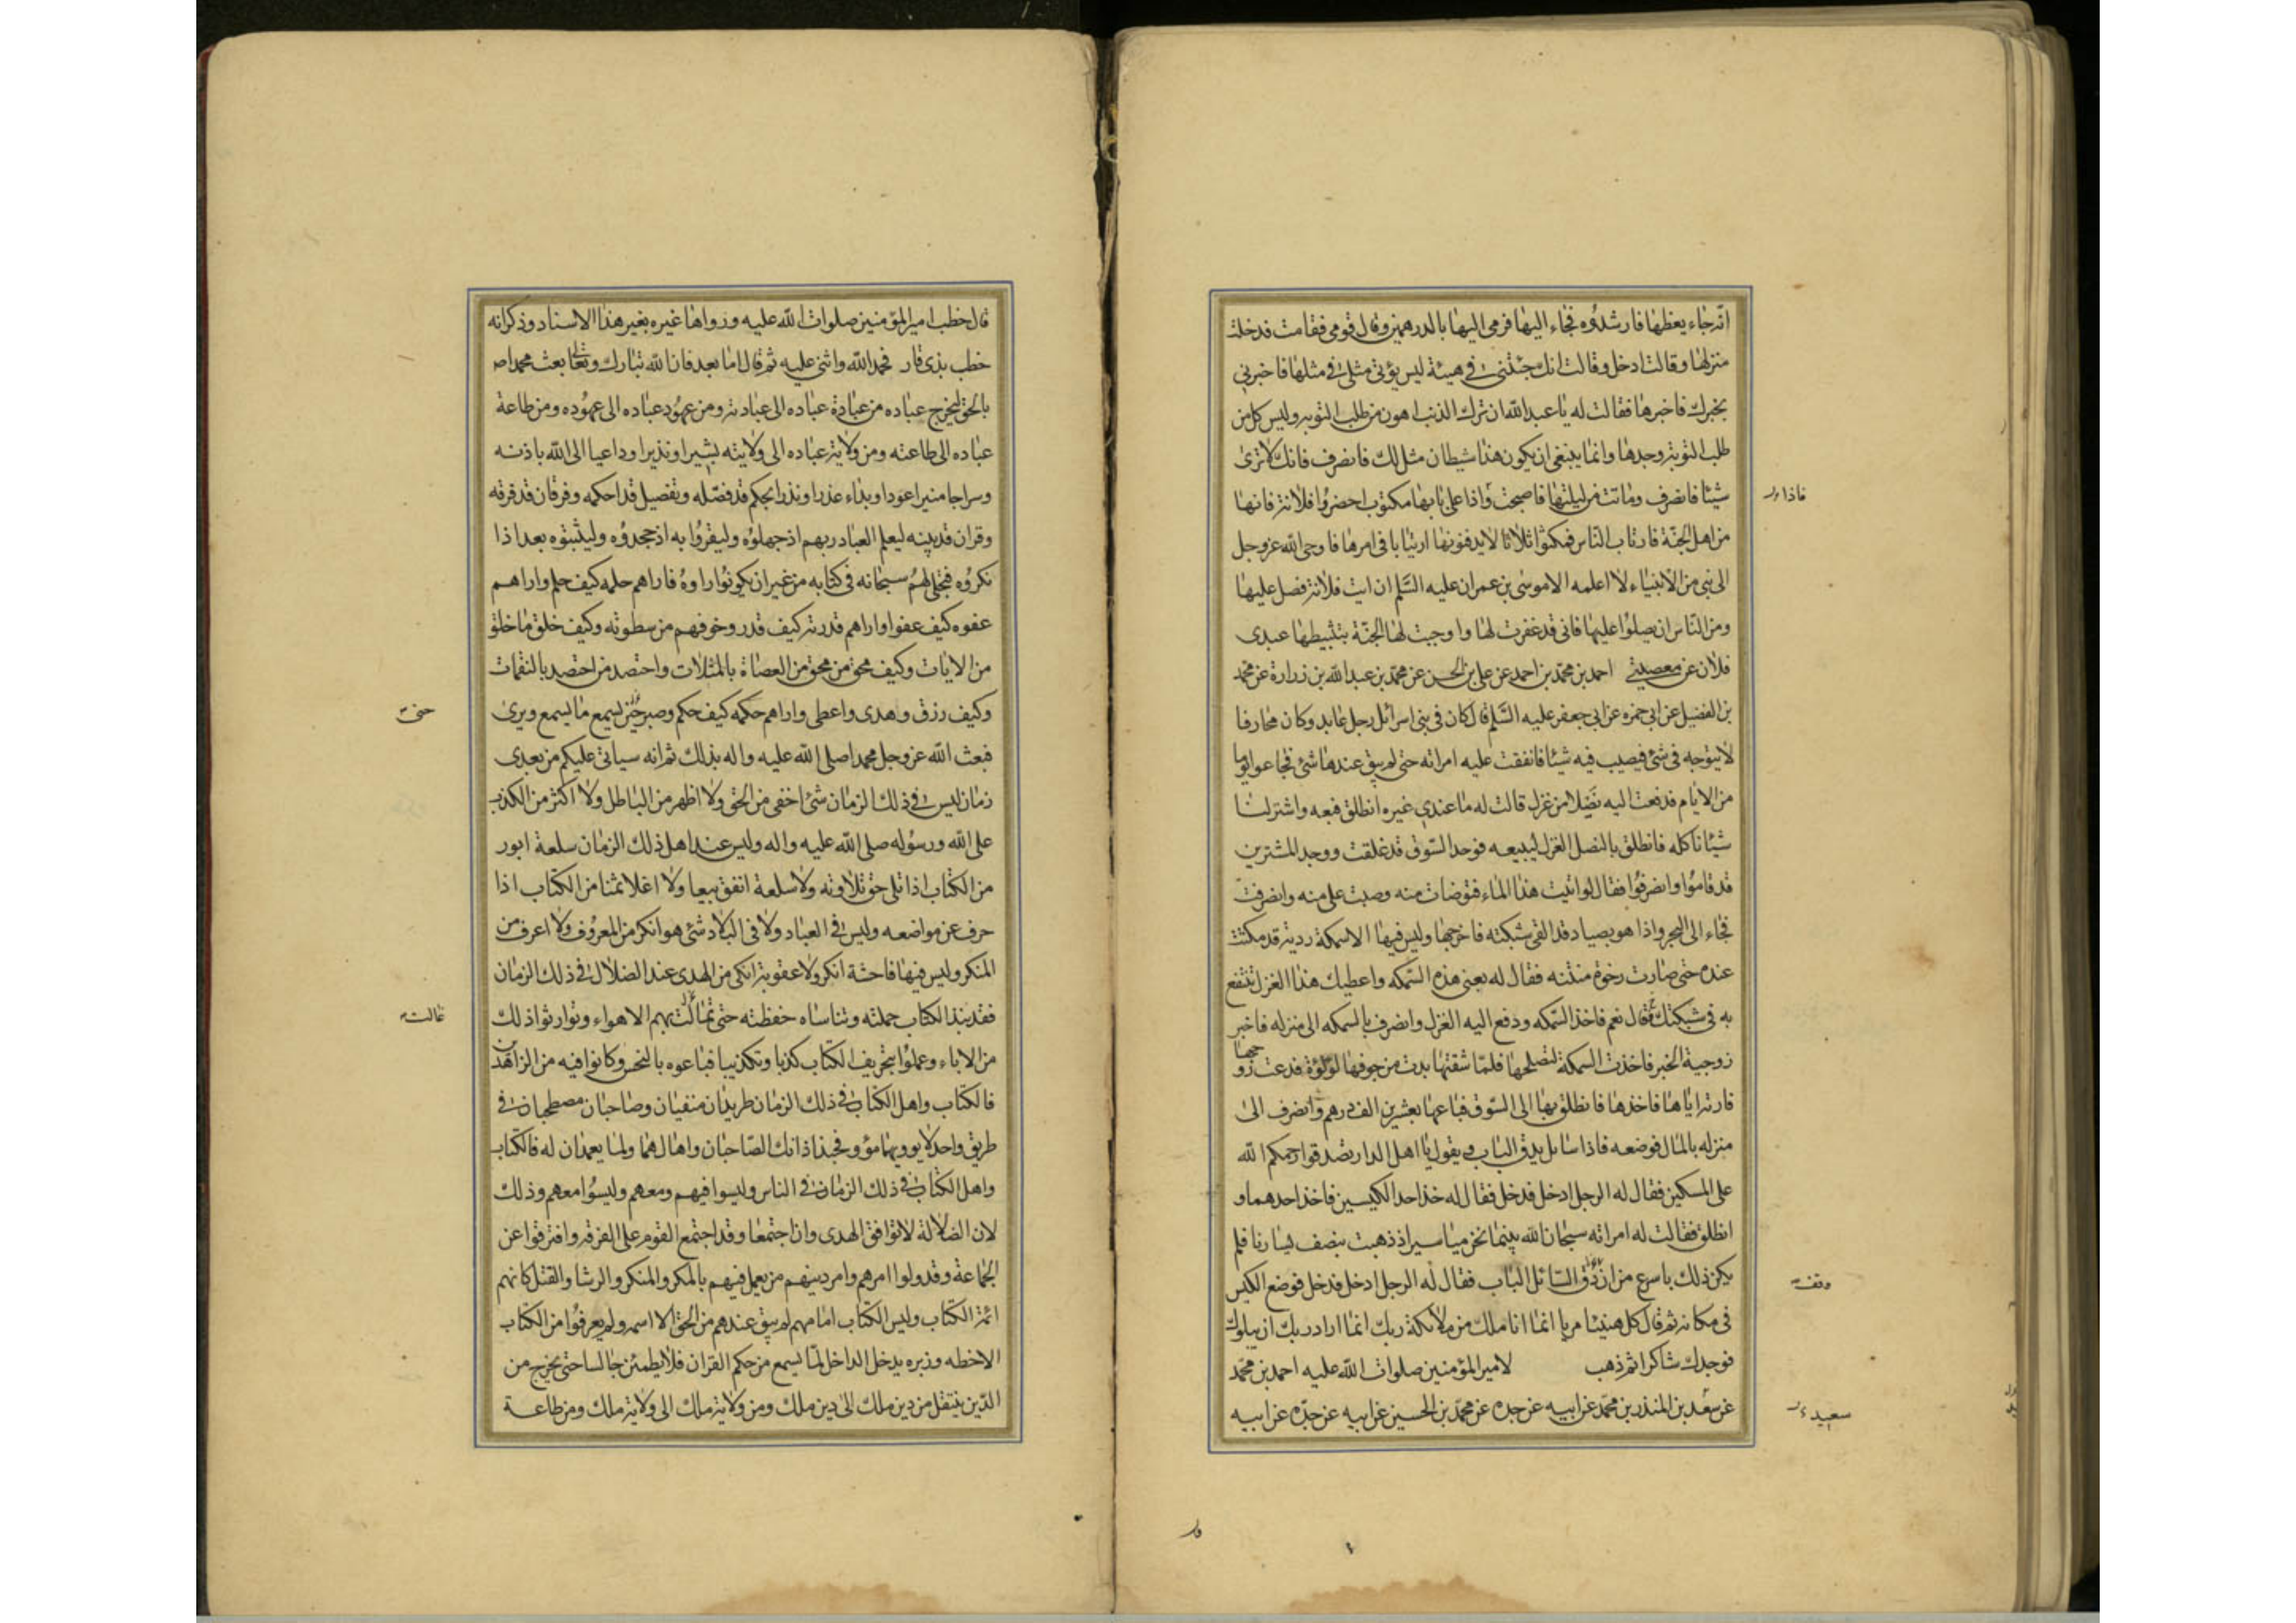 انه جاء يعظها فارشدوه فجاء اليها فرمى اليها بالدرهمين وقال قومى فقامت فدخلت
منزلها وقالت ادخل وقالت انك جئتنى فى هيئة ليس يؤتى مثلى فى مثلها فاخبرنى
بخبرك فاخبرها فقالت له يا عبد الله ان ترك الذنب اهون من طلب التوبه وليس كل من
طلب التوبة وجدها وانما ينبغى ان يكون هذا شيطان مثل لك فانصرف فانك لا ترى
شيئا فانصرف وماتت من ليلتها فاصبحت واذا على بابها مكتوب احضروا فلانة فانها
من اهل الجنة فارتاب الناس فمكثوا ثلاثا لا يدفنونها ارتيابا فى امرها فاوحى الله عزوجل
الى نبى من الانبياء لا اعلمه الا موسى بن عمران عليه السلم ان ايت فلانة فصل عليها
ومر الناس ان يصلوا عليها فانى قد غفرت لها واوجبت لها الجنة بتثبيطها عبدى
فلان عن معصيتى احمد بن محمد بن احمد عن على بن الحسن عن محمد بن عبد الله بن زرارة عن محمد
بن الفضيل عن ابى حمزه عن ابى جعفر عليه السلم قال كان فى بنى اسرائل رجل عابد وكان محارفا
لا يتوجه فى شئ فيصيب فيه شيئا فانفقت عليه امراته حتى لم يبق عندها شئ فجاعوا يوما
من الايام فدفعت اليه نصلا من غزل قالت له ما عندى غيره انطلق فبعه واشتر لنا
شيئا ناكله فانطلق بالنصل الغزل ليبيعه فوجد السوق قد غلقت ووجد المشترين
قد قاموا وانصرفوا فقال لو اتيت هذا الماء فتوضات منه وصببت على منه وانصرفت
فجاء الى البحر واذا هو بصياد قد القى شبكته فاخرجها وليس فيها الا سمكة ردية قد مكثت
عنده حتى صارت رخوة منتنه فقال له بعنى هذه السمكه واعطيك هذا الغزل تنتفع
به فى شبكتك قال نعم فاخذ السمكه ودفع اليه الغزل وانصرف بالسمكه الى منزله فاخبر
زوجية الخبر فاخذت السمكة لتصلحها فلما شقتها بدت من جوفها لؤلؤة فدعت زوجها
فارته اياها فاخذها فانطلق بها الى السوق فباعها بعشرين الف درهم وانصرف الى
منزله بالمال فوضعه فاذا سائل يدق الباب ويقول يا اهل الدار تصدقوا رحمكم الله
على المسكين فقال له الرجل ادخل فدخل فقال له خذ احد الكيسين فاخذ احدهما و
انطلق فقالت له امراته سبحان الله بينما نحن مياسير اذ ذهبت بنصف يسارنا فلم
يكن ذلك باسرع من ان دق السائل الباب فقال له الرجل ادخل فدخل فوضع الكيس
فى مكانه ثم قال كل هنيئا مريا انما انا ملك من ملائكة ربك انما اراد ربك ان يبلوك
فوجدك شاكرا ثم ذهب لامير المؤمنين صلوات الله عليه احمد بن محمد
عن سعد بن المنذر بن محمد عن ابيه عن جده عن محمد بن الحسين عن ابيه عن جده عن ابيه
فاذا
وقف
سعيد
قال خطب امير المؤمنين صلوات الله عليه ورواها غيره بغير هذا الاسناد وذكر انه
خطب بذى قار فحمد الله واثنى عليه ثم قال اما بعد فان الله تبارك وتعالى بعث محمدا ص
بالحق ليخرج عباده من عبادة عباده الى عبادته ومن عهود عباده الى عهوده ومن طاعة
عباده الى طاعته ومن ولاية عباده الى ولايته بشيرا ونذيرا وداعيا الى الله باذنه
وسراجا منيرا عودا وبداء عذرا ونذرا بحكم قد فصله وتفصيل قد احكمه وفرقان قد فرقه
وقران قد بينه ليعلم العباد ربهم اذ جهلوه وليقروا به اذ جحدوه وليثبتوه بعد اذا
نكروه فتجلى لهم سبحانه فى كتابه من غير ان يكونوا راوه فاراهم حلمه كيف حلم واراهم
عفوه كيف عفوا واراهم قدرته كيف قدر وخوفهم من سطوته وكيف خلق ما خلق
من الايات وكيف محق من محق من العصاة بالمثلات واحتصد من احتصد بالنقمات
وكيف رزق وهدى واعطى واراهم حكمه كيف حكم وصبر حين يسمع ما يسمع ويرى
فبعث الله عزوجل محمدا صلى الله عليه واله بذلك ثم انه سياتى عليكم من بعدى
زمان ليس فى ذلك الزمان شئ اخفى من الحق ولا اظهر من الباطل ولا اكثر من الكذب
على الله ورسوله صلى الله عليه واله وليس عند اهل ذلك الزمان سلعة ابور
من الكتاب اذا تلى حق تلاوته ولا سلعة انفق بيعا ولا اغلا ثمنا من الكتاب اذا
حرف عن مواضعه وليس فى العباد ولا فى البلاد شئ هو انكر من المعروف ولا اعرف من
المنكر وليس فيها فاحشة انكر ولا عقوبة انكى من الهدى عند الضلال فى ذلك الزمان
فقد نبذ الكتاب حملته وتناساه حفظته حتى تمالت بهم الاهواء وتوارثوا ذلك
من الاباء وعملوا بتحريف الكتاب كذبا وتكذيبا فباعوه بالبخس وكانوا فيه من الزاهدين
فالكتاب واهل الكتاب فى ذلك الزمان طريدان منفيان وصاحبان مصطحبان فى
طريق واحد لا يوويهما مؤو فحبذا ذانك الصاحبان واها لهما ولما يعمدان له فالكتاب
واهل الكتاب فى ذلك الزمان فى الناس وليسوا فيهم ومعهم وليسوا معهم وذلك
لان الضلالة لا توافق الهدى وان اجتمعا وقد اجتمع القوم على الفرقه وافترقوا عن
الجماعة وقد ولوا امرهم وامر دينهم من يعمل فيهم بالمكر والمنكر والرشا والقتل كانهم
ائمة الكتاب وليس الكتاب امامهم لم يبق عندهم من الحق الا اسمه ولم يعرفوا من الكتاب
الا خطه وزبره يدخل الداخل لما يسمع من حكم القران فلا يطمئن جالسا حتى يخرج من
الدين ينتقل من دين ملك الى دين ملك ومن ولاية ملك الى ولاية ملك ومن طاعة